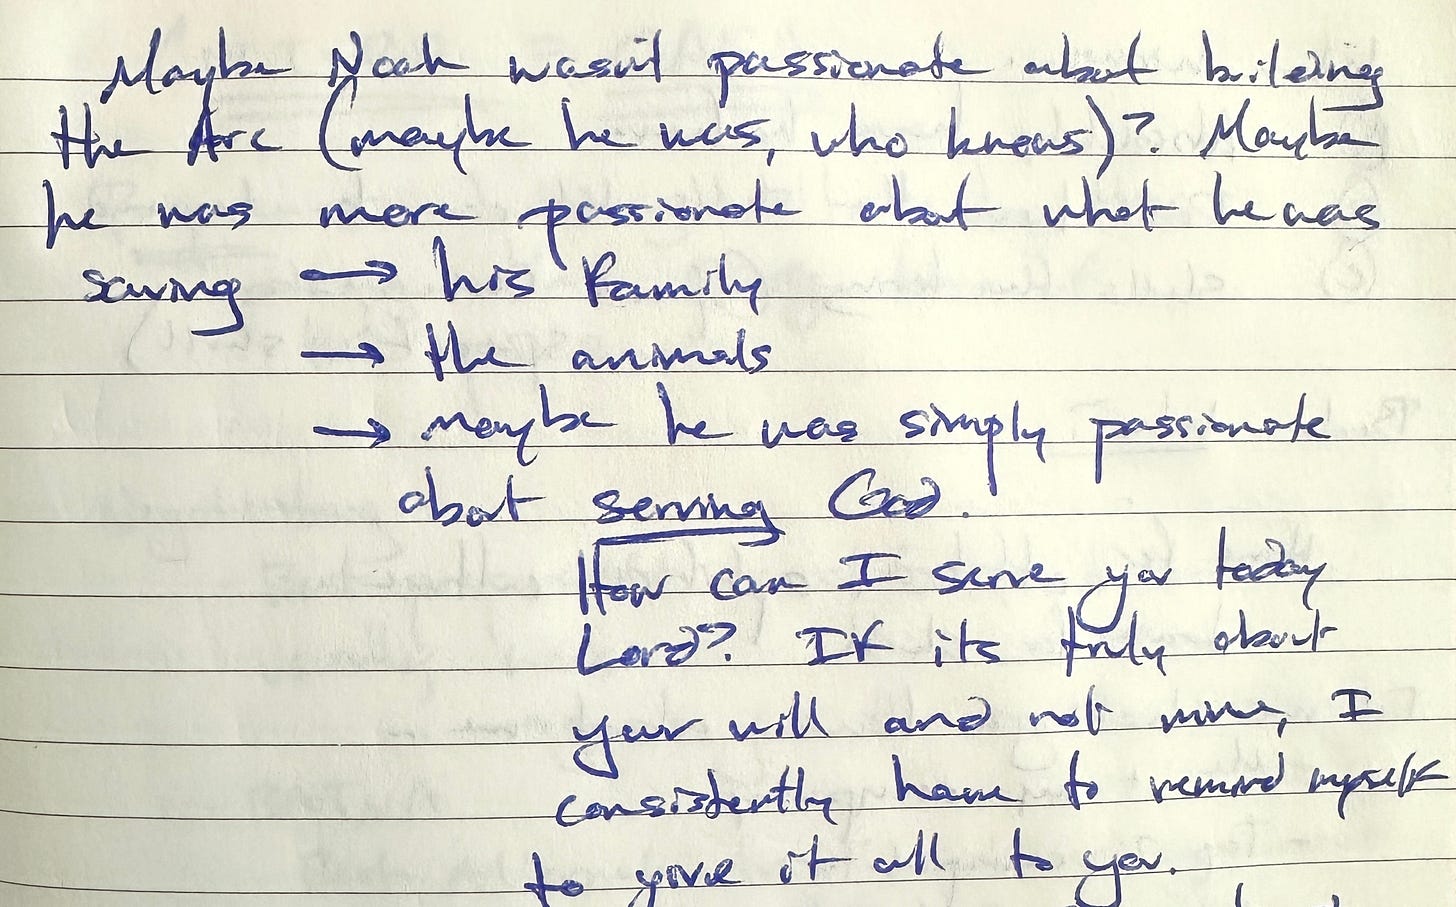 Maybe Noah wasn't passionate about building
the Arc (maybe he was, who knows)? Maybe
he was more passionate about what he was
saving → his family
→ the animals
→ maybe he was simply passionate
about serving God.
How can I serve you today
Lord? If its truly about
your will and not mine, I
consistently have to remind myself
to give it all to you.